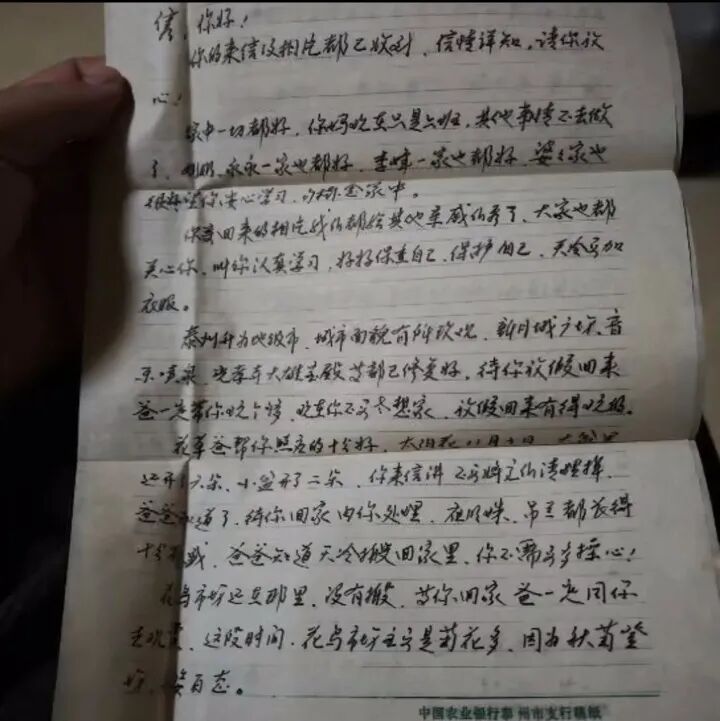 倩，你好！
你的来信及相片都已收到，信情详知，请你放
心！
家中一切都好，你妈现在只是上班，其他事情不去做
了，明明、永永一家也都好，李峰一家也都好，婆婆家也
很好，望你安心学习，勿挂念家中。
你寄回来的相片我们都给其他亲戚们看了，大家也都
关心你，叫你认真学习，好好保重自己，保护自己，天冷多加
衣服。
泰州升为地级市，城市面貌有所改观，新月城广场，音
乐喷泉，光孝寺大雄宝殿等都已修复好，待你放假回来
爸一定带你玩个够，现在你不多去想家，放假回来有得玩极。
花草爸帮你照应的十分好，太阳花 月 日，大盆里
还开了六朵，小盆开了二朵，你来信讲不要将它们清理掉，
爸爸知道了，待你回家由你处理，夜明珠、吊兰都长得
十分 ，爸爸知道天冷搬回家里，你不需多操心！
花鸟市场还是那里，没有搬，等你回家爸一定同你
去观赏，这段时间，花鸟市场主要是菊花多，因为秋菊登
场，姿百态。
中国农业银行泰州市支行稿纸